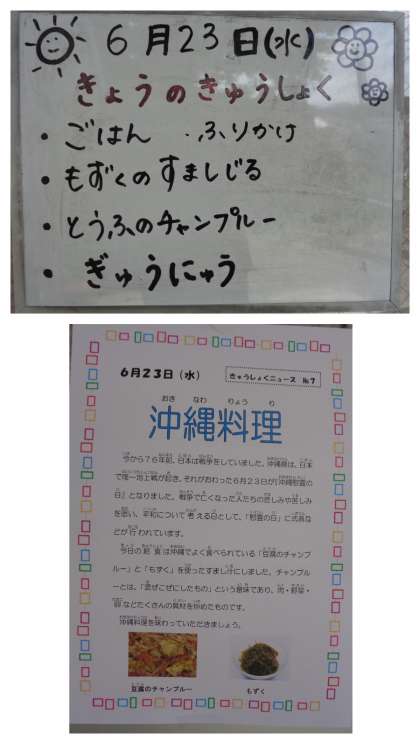 6月23日(水)
きょうのきゅうしょく
・ごはん ・ふりかけ
・もずくのすましじる
・とうふのチャンプルー
・ぎゅうにゅう
6月23日(水)
きゅうしょくニュース №7
おき なわ りょう り
沖縄料理
今から76年前、日本は戦争をしていました。沖縄県は、日本
で唯一地上戦が起き、それがおわった6月23日が『沖縄慰霊の
日』となりました。戦争で亡くなった人たちの苦しみや悲しみ
を思い、平和について考える日として、「慰霊の日」に式典な
どが行われています。
今日の給食は沖縄でよく食べられている「豆腐のチャンプ
ルー」と「もずく」を使ったすまし汁にしました。チャンプル
ーとは、「混ぜこぜにしたもの」という意味であり、肉・野菜・
卵などたくさんの具材を炒めたものです。
沖縄料理を味わっていただきましょう。
豆腐のチャンプルー
もずく